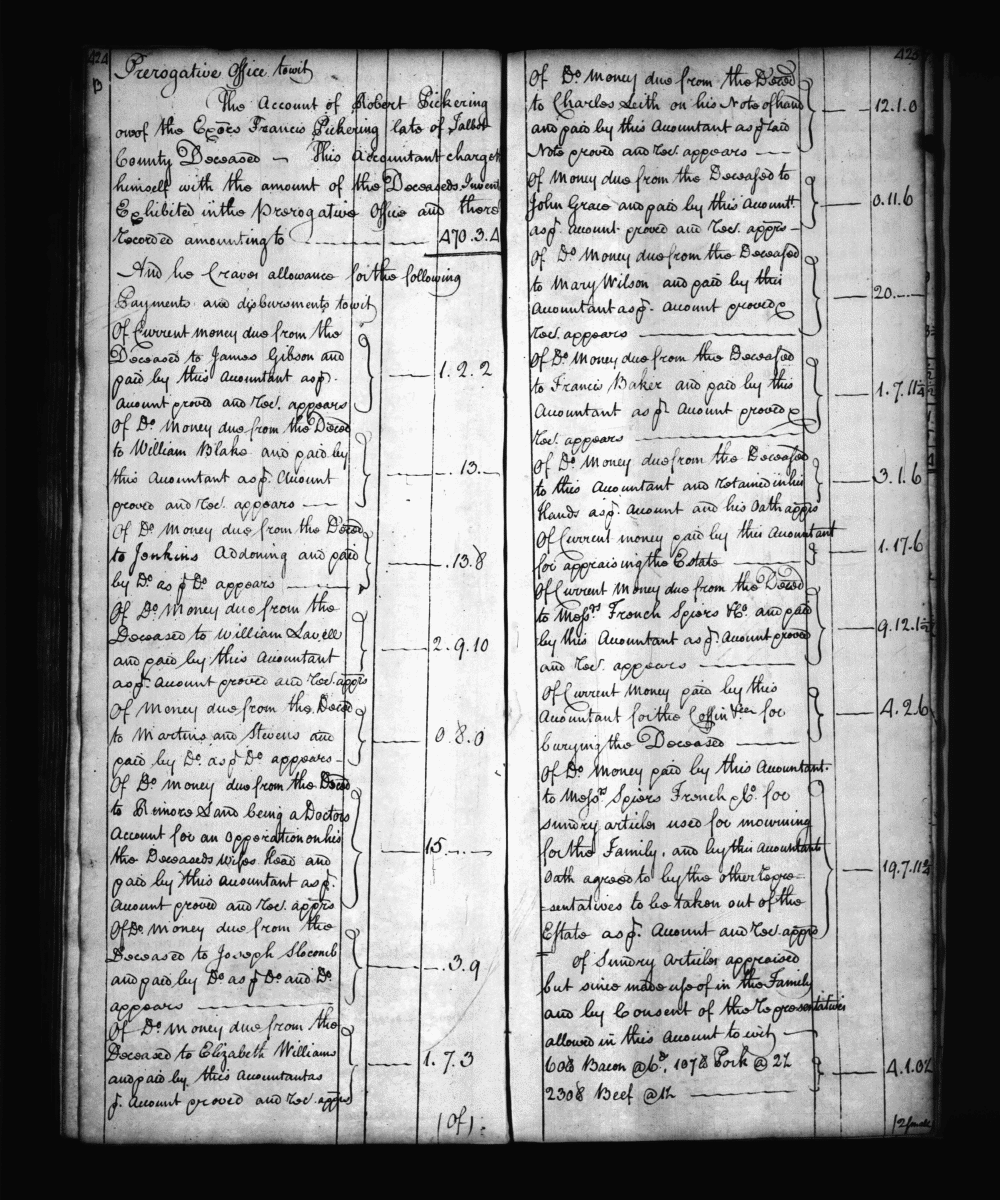 424
B
Prerogative Office towit
The Account of Robert Pickering
one of the Exõrs Francis Pickering late of Talbot
County Deceased — This Accountant charget
himself with the amount of the Deceaseds Invent
Exhibited in the Prerogative Office and there
Recorded amounting to 470.3.4
And he Craves allowance for the following
Payments and disbursments towit
Of Current money due from the
Deceased to James Gibson and
paid by this Accountant as ꝑ. 1.2.2
Account proved and Rec.t appears
Of Do. Money due from the Deced
to William Blake and paid by
this Accountant as ꝑ. Account .13.—
proved and Rec.t appears —
Of Do. Money due from the Deced
to Jenkins and paid .13.8
by Do. as ꝑ Do. appears
Of Do. Money due from the
Deceased to William Lavell
and paid by this Accountant 2.9.10
as ꝑ. Account proved and Rec.t apprs
Of Money due from the Deced
to Martins and Stevens and 0.8.0
paid by Do. as ꝑ Do. appears —
Of Do. Money due from the Deced
to Sand being a Doctors
Account for an Opperation on his
the Deceaseds Wifes Head and 15.—.—
paid by this Accountant as ꝑ.
Account proved and Rec.t apprs
Of Do. Money due from the
Deceased to Joseph Slocomb
and paid by Do. as ꝑ Do. and Do. .3.9
appears
Of Do. Money due from the
Deceased to Elizabeth Williams
and paid by this Accountant as 1.7.3
ꝑ. Account proved and Rec.t apprs
425
Of Do. Money due from the Deced
to Charles Leith on his Note of hand 12.1.0
and paid by this Accountant as ꝑ said
Note proved and Rec.t appears —
Of Money due from the Deceased to
John Grace and paid by this Account.t 0.11.6
as ꝑ. Account proved and Rec.t apprs —
Of Do. Money due from the Deceased
to Mary Wilson and paid by this 20.—.—
Accountant as ꝑ. Account proved &
Rec.t appears
Of Do. Money due from the Deceased
to Francis Baker and paid by this 1.7.11¼
Accountant as ꝑ. Account proved &
Rec.t appears
Of Do. Money due from the Deceased
to this Accountant and Retained in his 3.1.6
Hands as ꝑ. Account and his Oath apprs
Of Current money paid by this Accountant
for appraising the Estate 1.17.6
Of Current Money due from the Deced
to Mess.rs French Spiers & Co. and paid
by this Accountant as ꝑ. Account proved 9.12.1½
and Rec.t appears
Of Current Money paid by this
Accountant for the Coffin &c for 4.2.6
burying the Deceased
Of Do. Money paid by this Accountant.
to Mess.rs Spiers French & Co. for
sundry articles used for mourning
for the Family, and by this Accountants
Oath agreed to by the other Repre= 19.7.11¾
=sentatives to be taken out of the
Estate as ꝑ. Account and Rec.t apprs
Of Sundry Articles appraised
but since made use of in the Family
and by Consent of the Representatives
allowed in this Account to wit
60 ℔ Bacon @ 6d, 107 ℔ Pork @ 2½
230 ℔ Beef @ 1½